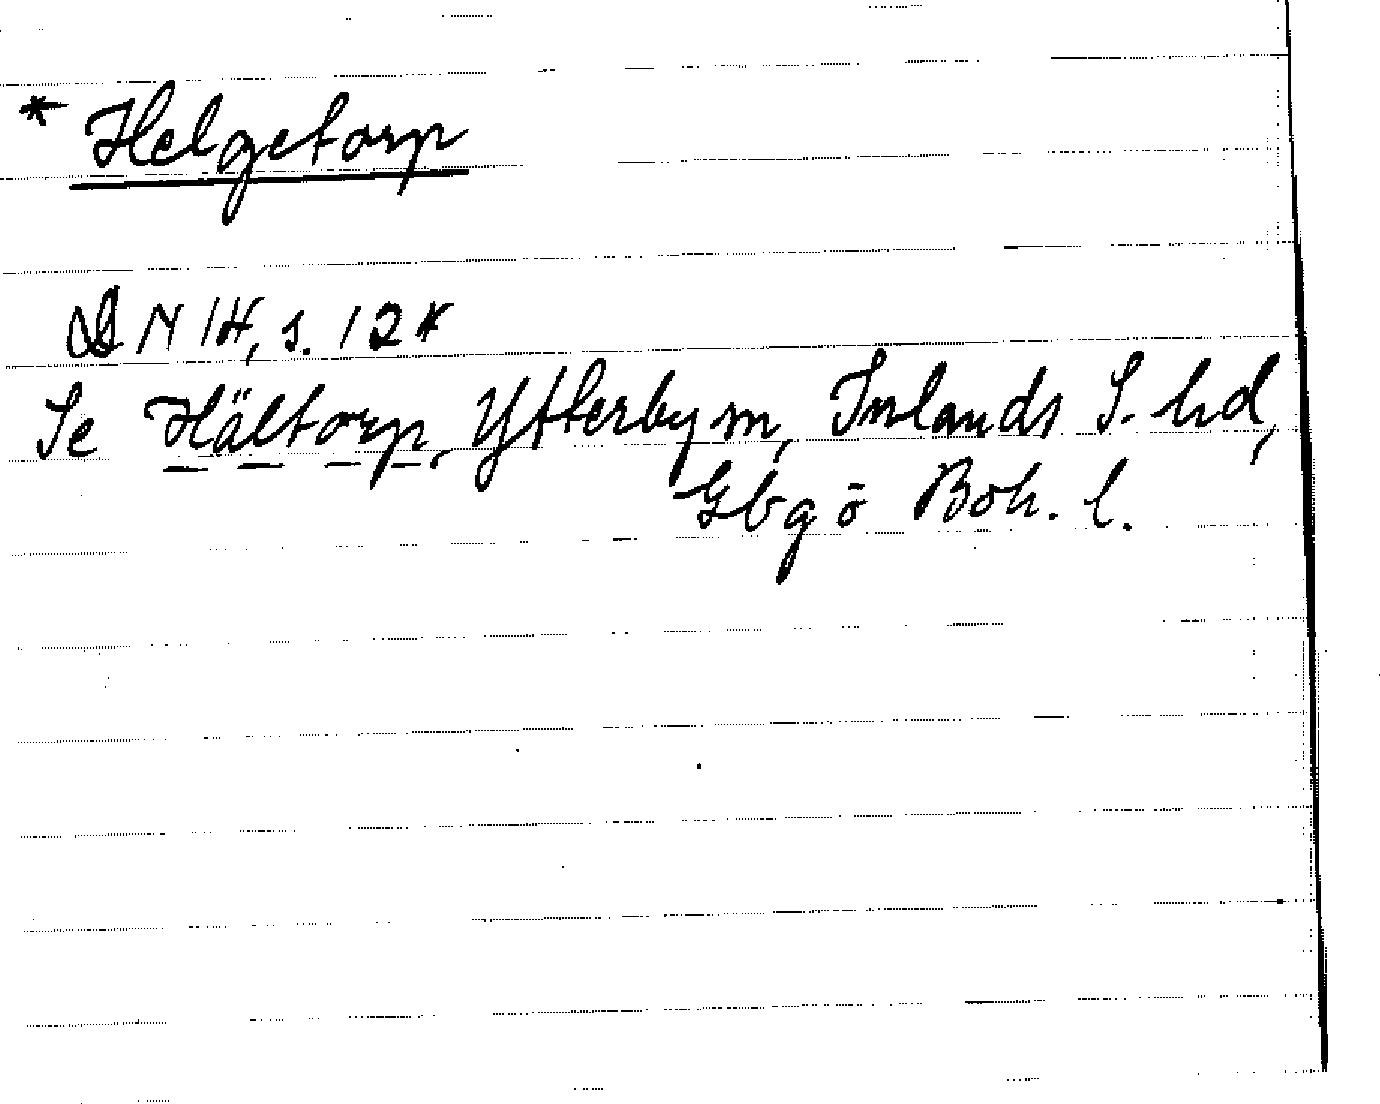 * Helgetorp
DN 14, s. 124
Se Hältorp, Ytterby sn, Inlands S. hd,
Gbg o Boh. l.